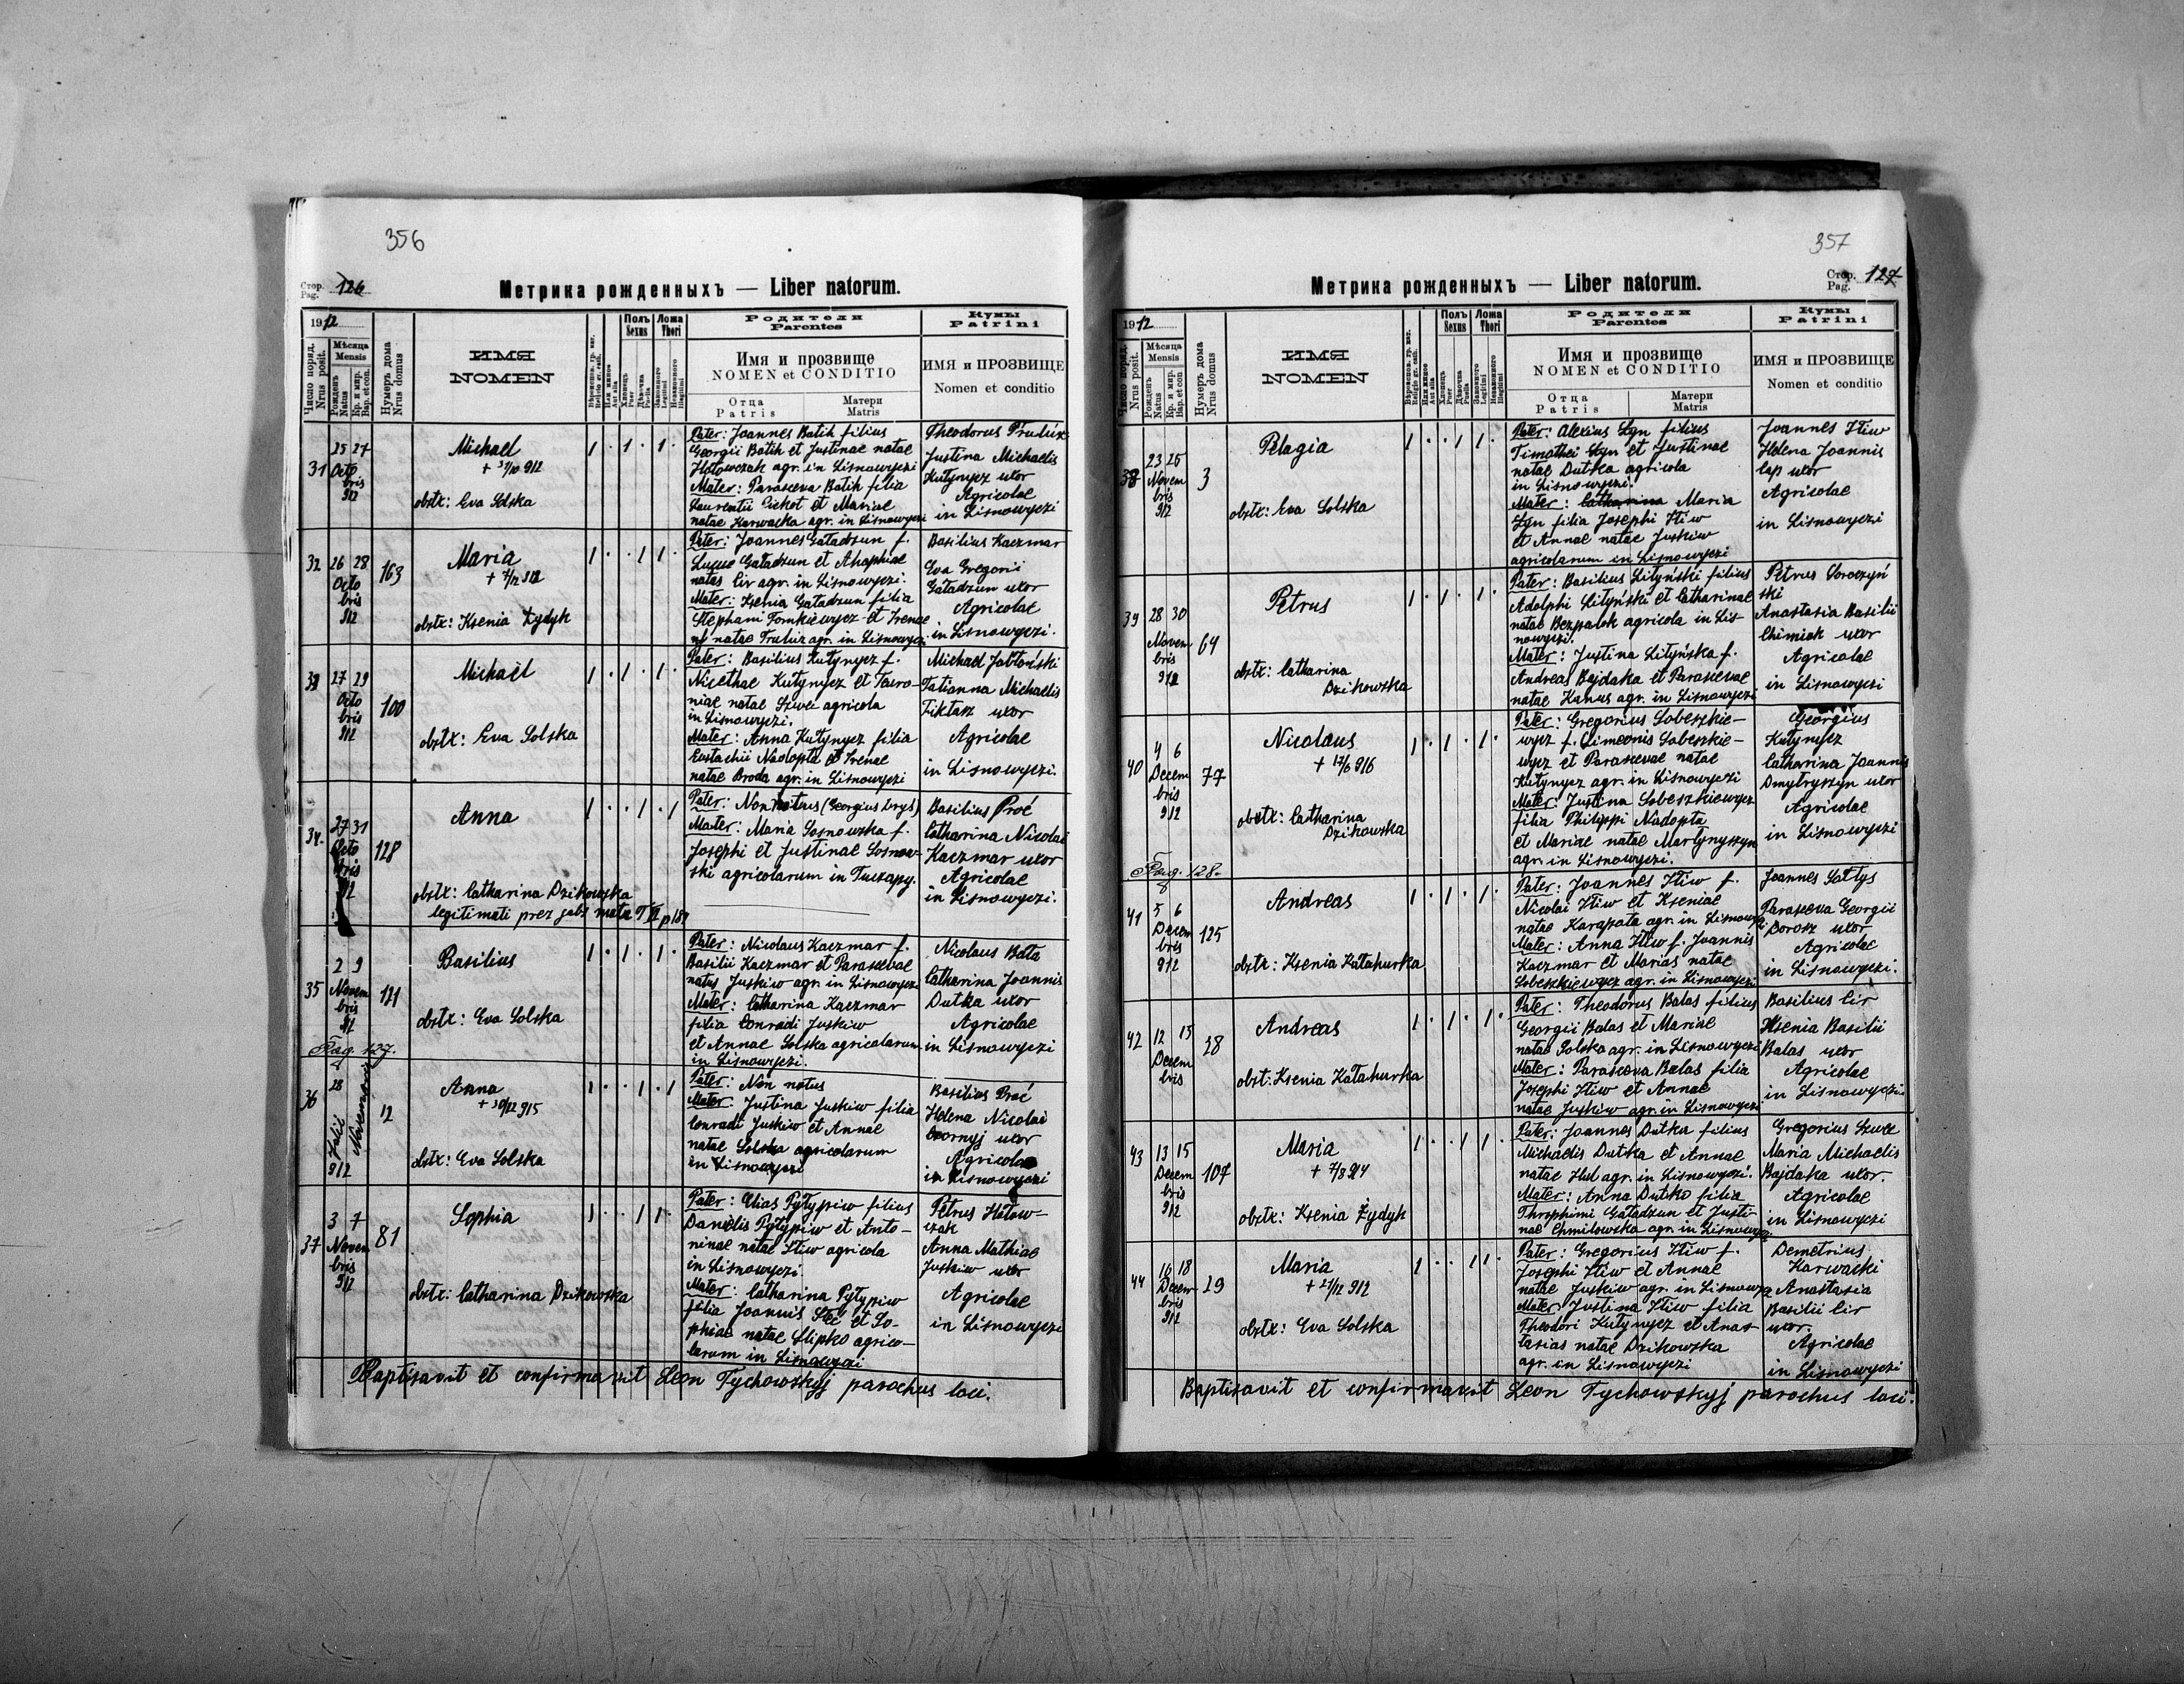 356
Стор. Pag. 126
Метрика рожденныхъ — Liber natorum.
1912
Число поряд. Nrus posit.
Мѣсяца Mensis
Рожденъ Natus
Кр. и мир. Bap. et con.
Нумеръ дома Nrus domus
ИМЯ
NOMEN
Полъ Sexus
Хлопець Puer
Дѣвочка Puella
Ложа Thori
Законного Legitimi
Незаконного Illegitimi
Родители
Parentes
Имя и прозвище
NOMEN et CONDITIO
Отца Patris
Матери Matris
Кумы
Patrini
ИМЯ и ПРОЗВИЩЕ
Nomen et conditio
31
25 27
Octo
bris
912
Michael
obstx: Eva Solska
Pater: Joannes Batih filius
Georgii Batih et Justinae natae
Hołowczak agr. in Lisnowyczi
Mater: Parasceva Batih filia
Laurentii et Mariae
natae Karwacka agr. in Lisnowyczi
Theodorus
Justina Michaelis
Kutynycz uxor
Agricolae
in Lisnowyczi
32
26 28
Octo
bris
912
163
Maria
obstx: Ksenia Żydyk
Pater: Joannes Gaładzun f.
Lucae Gaładzun et Ahaphiae
natae Cir agr. in Lisnowyczi.
Mater: Ksenia Gaładzun filia
Stephani Tomkiewycz et Irenae
natae agr. in Lisnowyczi
Basilius Kaczmar
Eva Gregorii
Gaładzun uxor
Agricolae
in Lisnowyczi.
33
27 29
Octo
bris
912
100
Michaël
obstx: Eva Solska
Pater: Basilius Kutynycz f.
Nicethae Kutynycz et Tacia-
natae agricola
in Lisnowyczi.
Mater: Anna Kutynycz filia
Eustachii Nadopta et Irenae
natae Broda agr. in Lisnowyczi
Michael Jabłoński
Tatianna Michaelis
Fiktasz uxor
Agricolae
in Lisnowyczi.
34.
27 31
Octo
bris
912
128
Anna
obstx: Catharina Dzikowska
legitimati prez
Pater: Non natus (Georgius Drys)
Mater: Maria Sosnowska f.
Josephi et Justinae Sosnow-
ski agricolarum in Tuczapy.
Basilius Proć
Catharina Nicolai
Kaczmar uxor
Agricolae
in Lisnowyczi.
35
2 9
Novem
bris
912
121
Basilius
obstx: Eva Solska
Pater: Nicolaus Kaczmar f.
Basilii Kaczmar et Parascevae
natae Juskiw agr. in Lisnowyczi
Mater: Catharina Kaczmar
filia Conradi Juskiw
et Annae Solska agricolarum
in Lisnowyczi.
Nicolaus Bała
Catharina Joannis
Dutka uxor
Agricolae
in Lisnowyczi
Pag. 127.
36
28
Julii
912
Novembris
12
Anna
+ 30/12 915
obstx: Eva Solska
Pater: Non natus
Mater: Justina Juskiw filia
Conradi Juskiw et Annae
natae Solska agricolarum
in Lisnowyczi
Basilius Proć
Helena Nicolai
uxor
Agricolae
in Lisnowyczi
37
3 7
Novem
bris
912
81
Sophia
obstx: Catharina Dzikowska
Pater: Elias Pyłypiw filius
Danielis Pyłypiw et Anto-
ninae natae Iłiw agricola
in Lisnowyczi.
Mater: Catharina Pyłypiw
filia Joannis Steć et So-
phiae natae Slipko agrico-
larum in Lisnowyczi
Petrus Hołow-
czak
Anna Mathiae
Juskiw uxor
Agricolae
in Lisnowyczi
Baptisavit et confirmavit Leon Tychowskyj parochus loci.
357
Стор. Pag. 127
Метрика рожденныхъ — Liber natorum.
1912
Число поряд. Nrus posit.
Мѣсяца Mensis
Рожденъ Natus
Кр. и мир. Bap. et con
Нумеръ дома Nrus domus
ИМЯ
NOMEN
Полъ Sexus
Хлопець Puer
Дѣвочка Puella
Ложа Thori
Законного Legitimi
Незаконного Illegitimi
Родители
Parentes
Имя и прозвище
NOMEN et CONDITIO
Отца Patris
Матери Matris
Кумы
Patrini
ИМЯ и ПРОЗВИЩЕ
Nomen et conditio
38
23 25
Novem
bris
912
3
Pelagia
obstx: Eva Solska
Pater: Alexius Łyn filius
Timothei Łyn et Justinae
natae Dutka agricola
in Lisnowyczi.
Mater: Catharina Maria
Łyn filia Josephi Iłiw
et Annae natae Juskiw
agricolarum in Lisnowyczi
Joannes Iłiw
Helena Joannis
Cap uxor
Agricolae
in Lisnowyczi
39
28 30
Novem
bris
912
64
Petrus
obstx: Catharina
Dzikowska
Pater: Basilius Lityński filius
Adolphi Lityński et Catharinae
natae Bezpałok agricola in Lis-
nowyczi.
Mater: Justina Lityńska f.
Andreas Bajdaka et Parascevae
natae Kanus agr. in Lisnowyczi
Petrus
ski
Anastasia Basilii
Chimiak uxor
Agricolae
in Lisnowyczi
40
4 6
Decem
bris
912
77
Nicolaus
+ 17/6 916
obstx: Catharina
Dzikowska
Pater: Gregorius Sobeszkie-
wycz f. Simeonis Sobeszkie-
wycz et Parascevae natae
Kutynycz agr. in Lisnowyczi
Mater: Justina Sobeszkiewycz
filia Philippi Nadopta
et Mariae natae Martynyszyn
agr. in Lisnowyczi.
Georgius
Kutynycz
Catharina Joannis
Dmytryszyn uxor
Agricolae
in Lisnowyczi
Pag. 128.
41
5 6
Decem
bris
912
125
Andreas
obstx: Ksenia Kałahurka
Pater: Joannes Iłiw f.
Nicolai Iłiw et Kseniae
natae Karapata agr. in Lisnowyczi
Mater: Anna Iłiw f. Joannis
Kaczmar et Marias natae
Sobeszkiewycz agr. in Lisnowyczi
Joannes Sołtys
Parasceva Georgii
Dorosz uxor
Agricolae
in Lisnowyczi.
42
12 15
Decem
bris
Andreas
obst: Ksenia Kałahurka
Pater: Theodorus Balas filius
Georgii Balas et Mariae
natae Solska agr. in Lisnowyczi
Mater: Parasceva Balas filia
Josephi Iłiw et Annae
natae Juskiw agr. in Lisnowyczi
Basilius Cir
Ksenia Basilii
Balas uxor
Agricolae
in Lisnowyczi
43
13 15
Decem
bris
912
107
Maria
obstx: Ksenia Żydyk
Pater: Joannes Dutka filius
Michaelis Dutka et Annae
natae Hul agr. in Lisnowyczi.
Mater: Anna Dutko filia
Throphimi Gaładzun et Justi-
nae Chmilowska agr. in Lisnowyczi
Gregorius Szwec
Maria Michaelis
Bajdaka uxor.
Agricolae
in Lisnowyczi
44
16 18
Decem
bris
912
19
Maria
+ 21/12 912
obstx: Eva Solska
Pater: Gregorius Iłiw f.
Josephi Iłiw et Annae
natae Juskiw agr. in Lisnowyczi
Mater: Justina Iłiw filia
Theodori Kutynycz et Anas-
tasias natae Dzikowska
agr. in Lisnowyczi
Demetrius
Karwacki
Anastasia
Basilii Cir
uxor.
Agricolae
in Lisnowyczi
Baptisavit et confirmavit Leon Tychowskyj parochus loci.